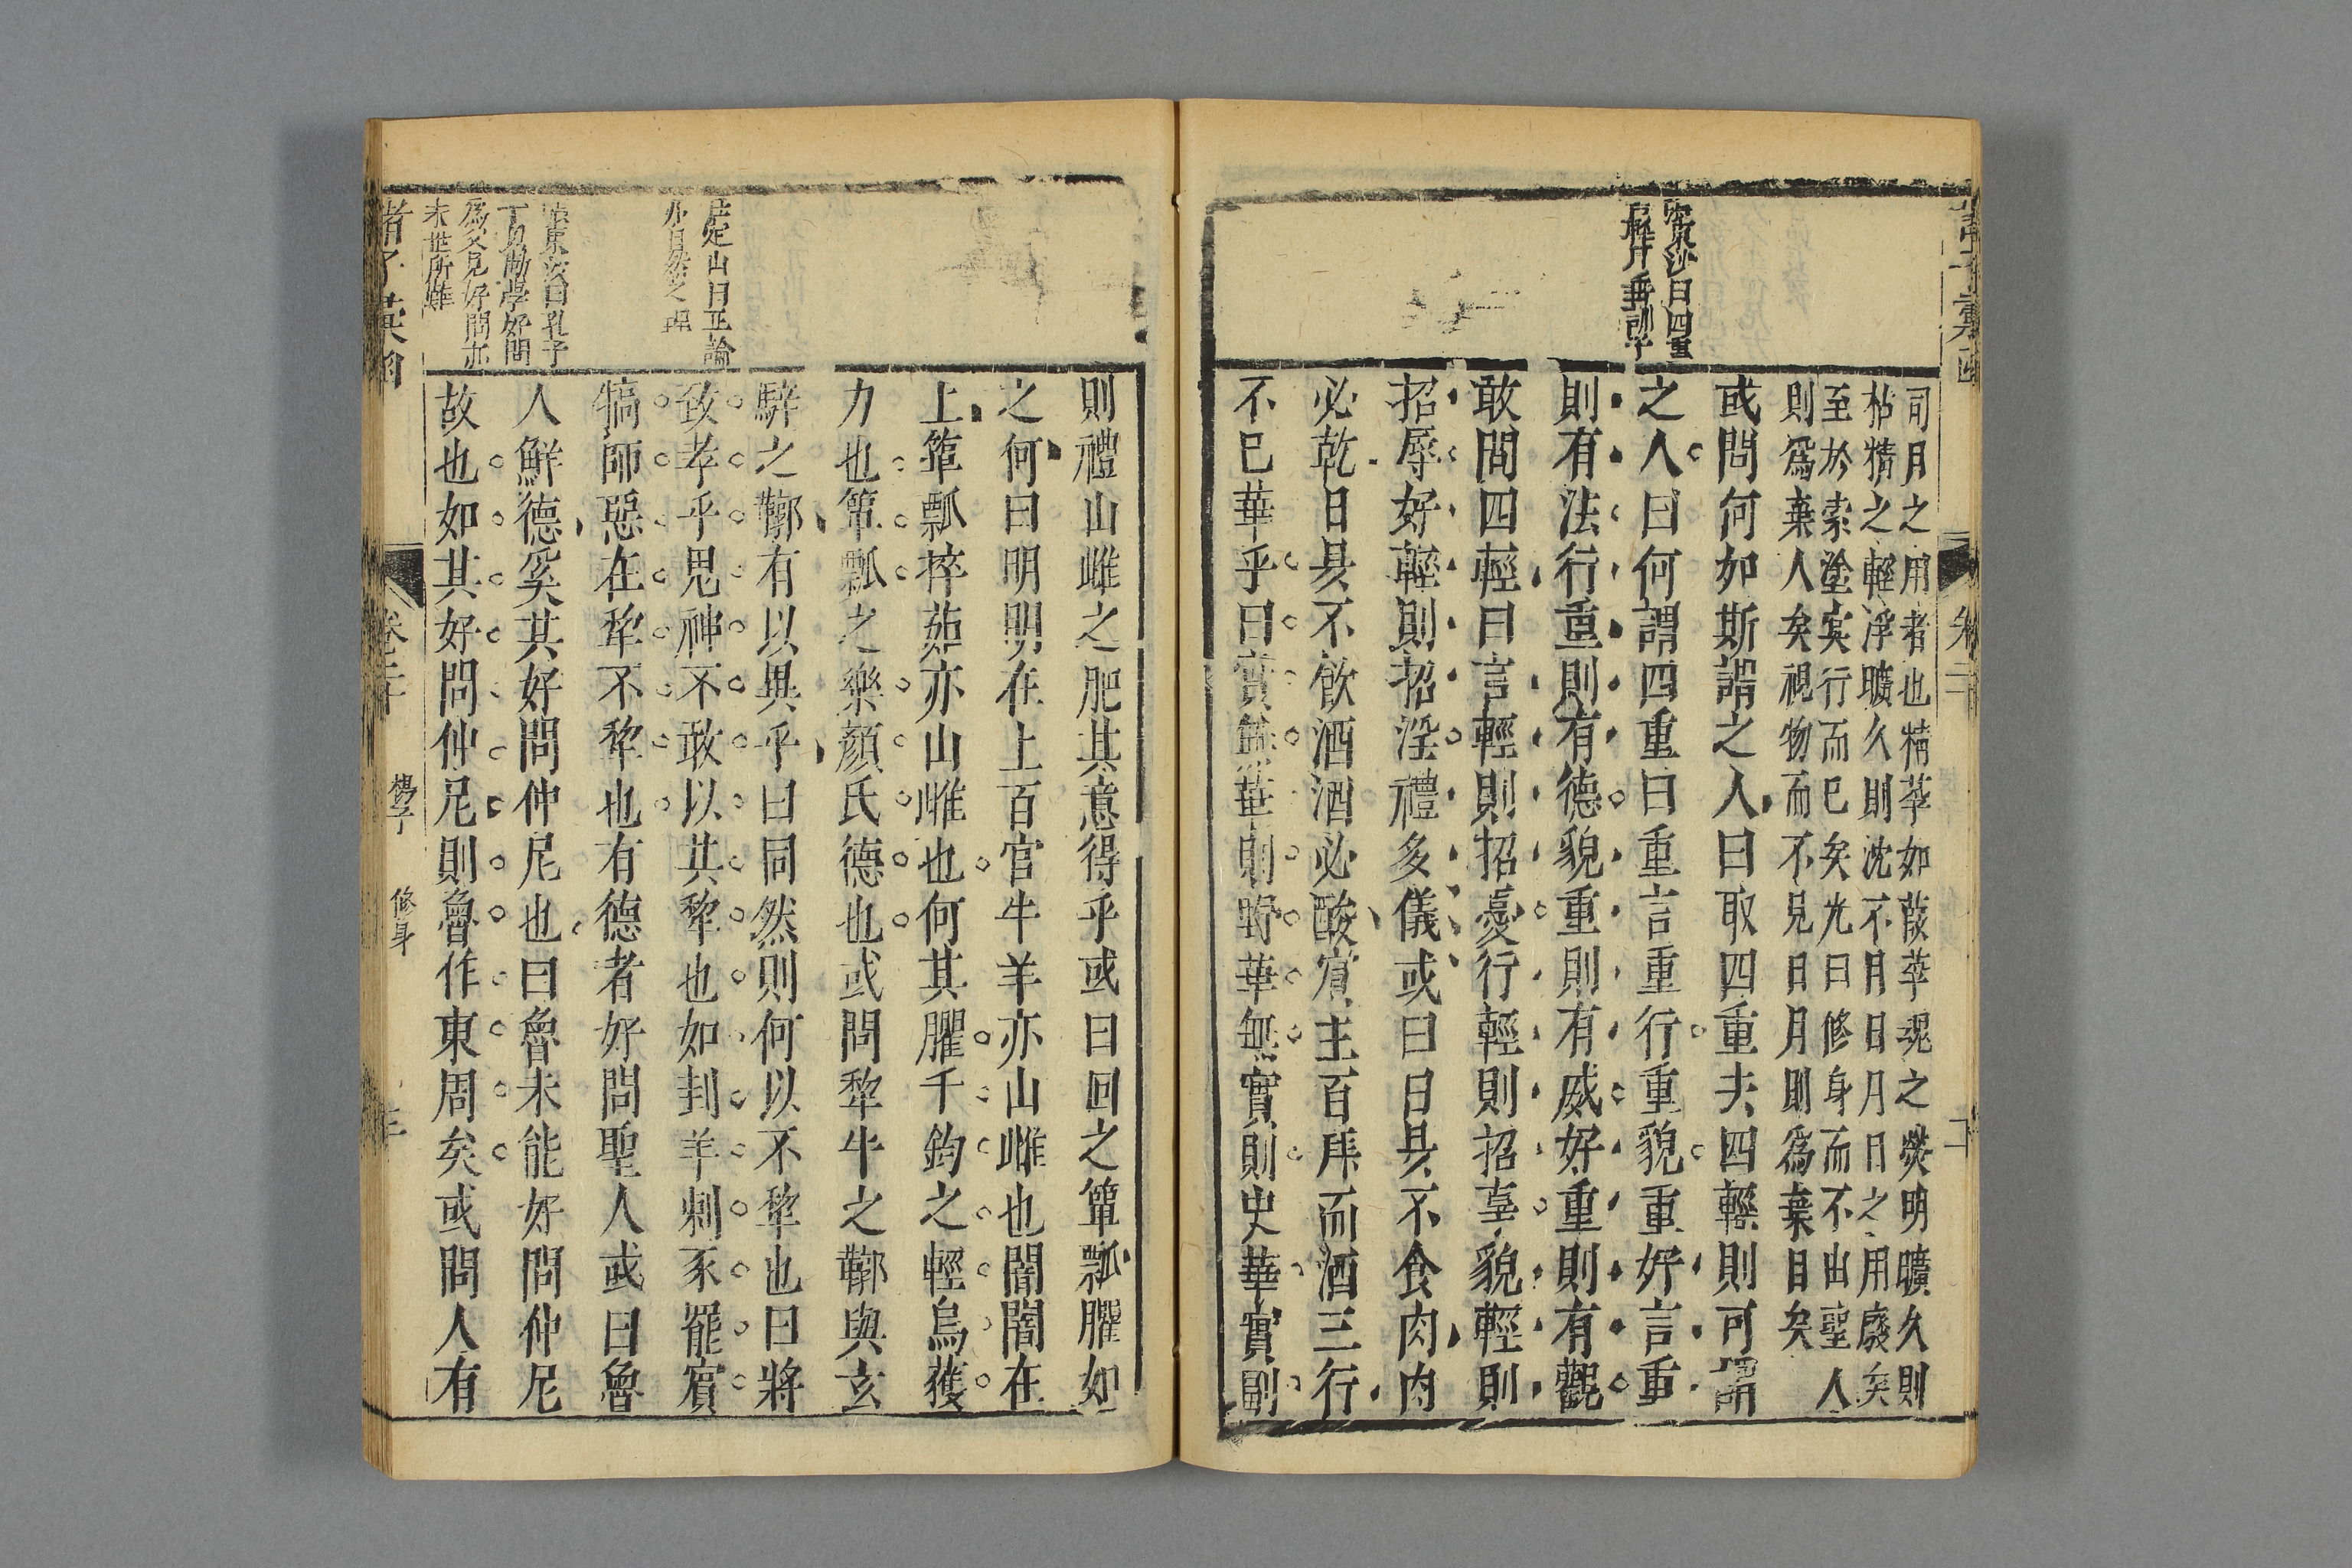 宗泉沙曰四重
司月之用者也精莘如葭莩魂之熒明曠久則
枯精之輕浮曠久則沈不月日月日之用廢矣
至於索塗冥行而已矣光曰修身而不由聖人
則爲棄人矣視物而不見日月則爲棄日矣
或問何如斯謂之人曰取四重去四輕則可謂
之人曰何謂四重曰重言重行重貌重好言重
則有法行重則有德貌重則有威好重則有觀
敢問四輕曰言輕則招憂行輕則招辜貌輕則
招辱好輕則招淫禮多儀或曰日昃不食肉肉
必乾日昃不飲酒酒必酸賓主百拜而酒三行
不已華乎曰實無華則野華無實則史華實副
山曰正論
亦自然之
東坡曰孔子
丁見勸學好問
爲父見好問亦
末世所難
則禮山雌之肥其意得乎或曰回之簞瓢臞如
之何曰明明在上百官牛羊亦山雌也闇闇在
上簞瓢捽茹亦山雌也何其臞千鈞之輕烏獲
力也簞瓢之樂顏氏德也或問犂牛之鞹與玄
騂之鞹有以異乎曰同然則何以不犂也曰將
致孝乎鬼神不敢以其犂也如刲羊刺豕罷賓
犒師惡在犂不犂也有德者好問聖人或曰魯
人鮮德奚其好問仲尼也曰魯未能好問仲尼
故也如其好問仲尼則魯作東周矣或問人有
卷二十
修身